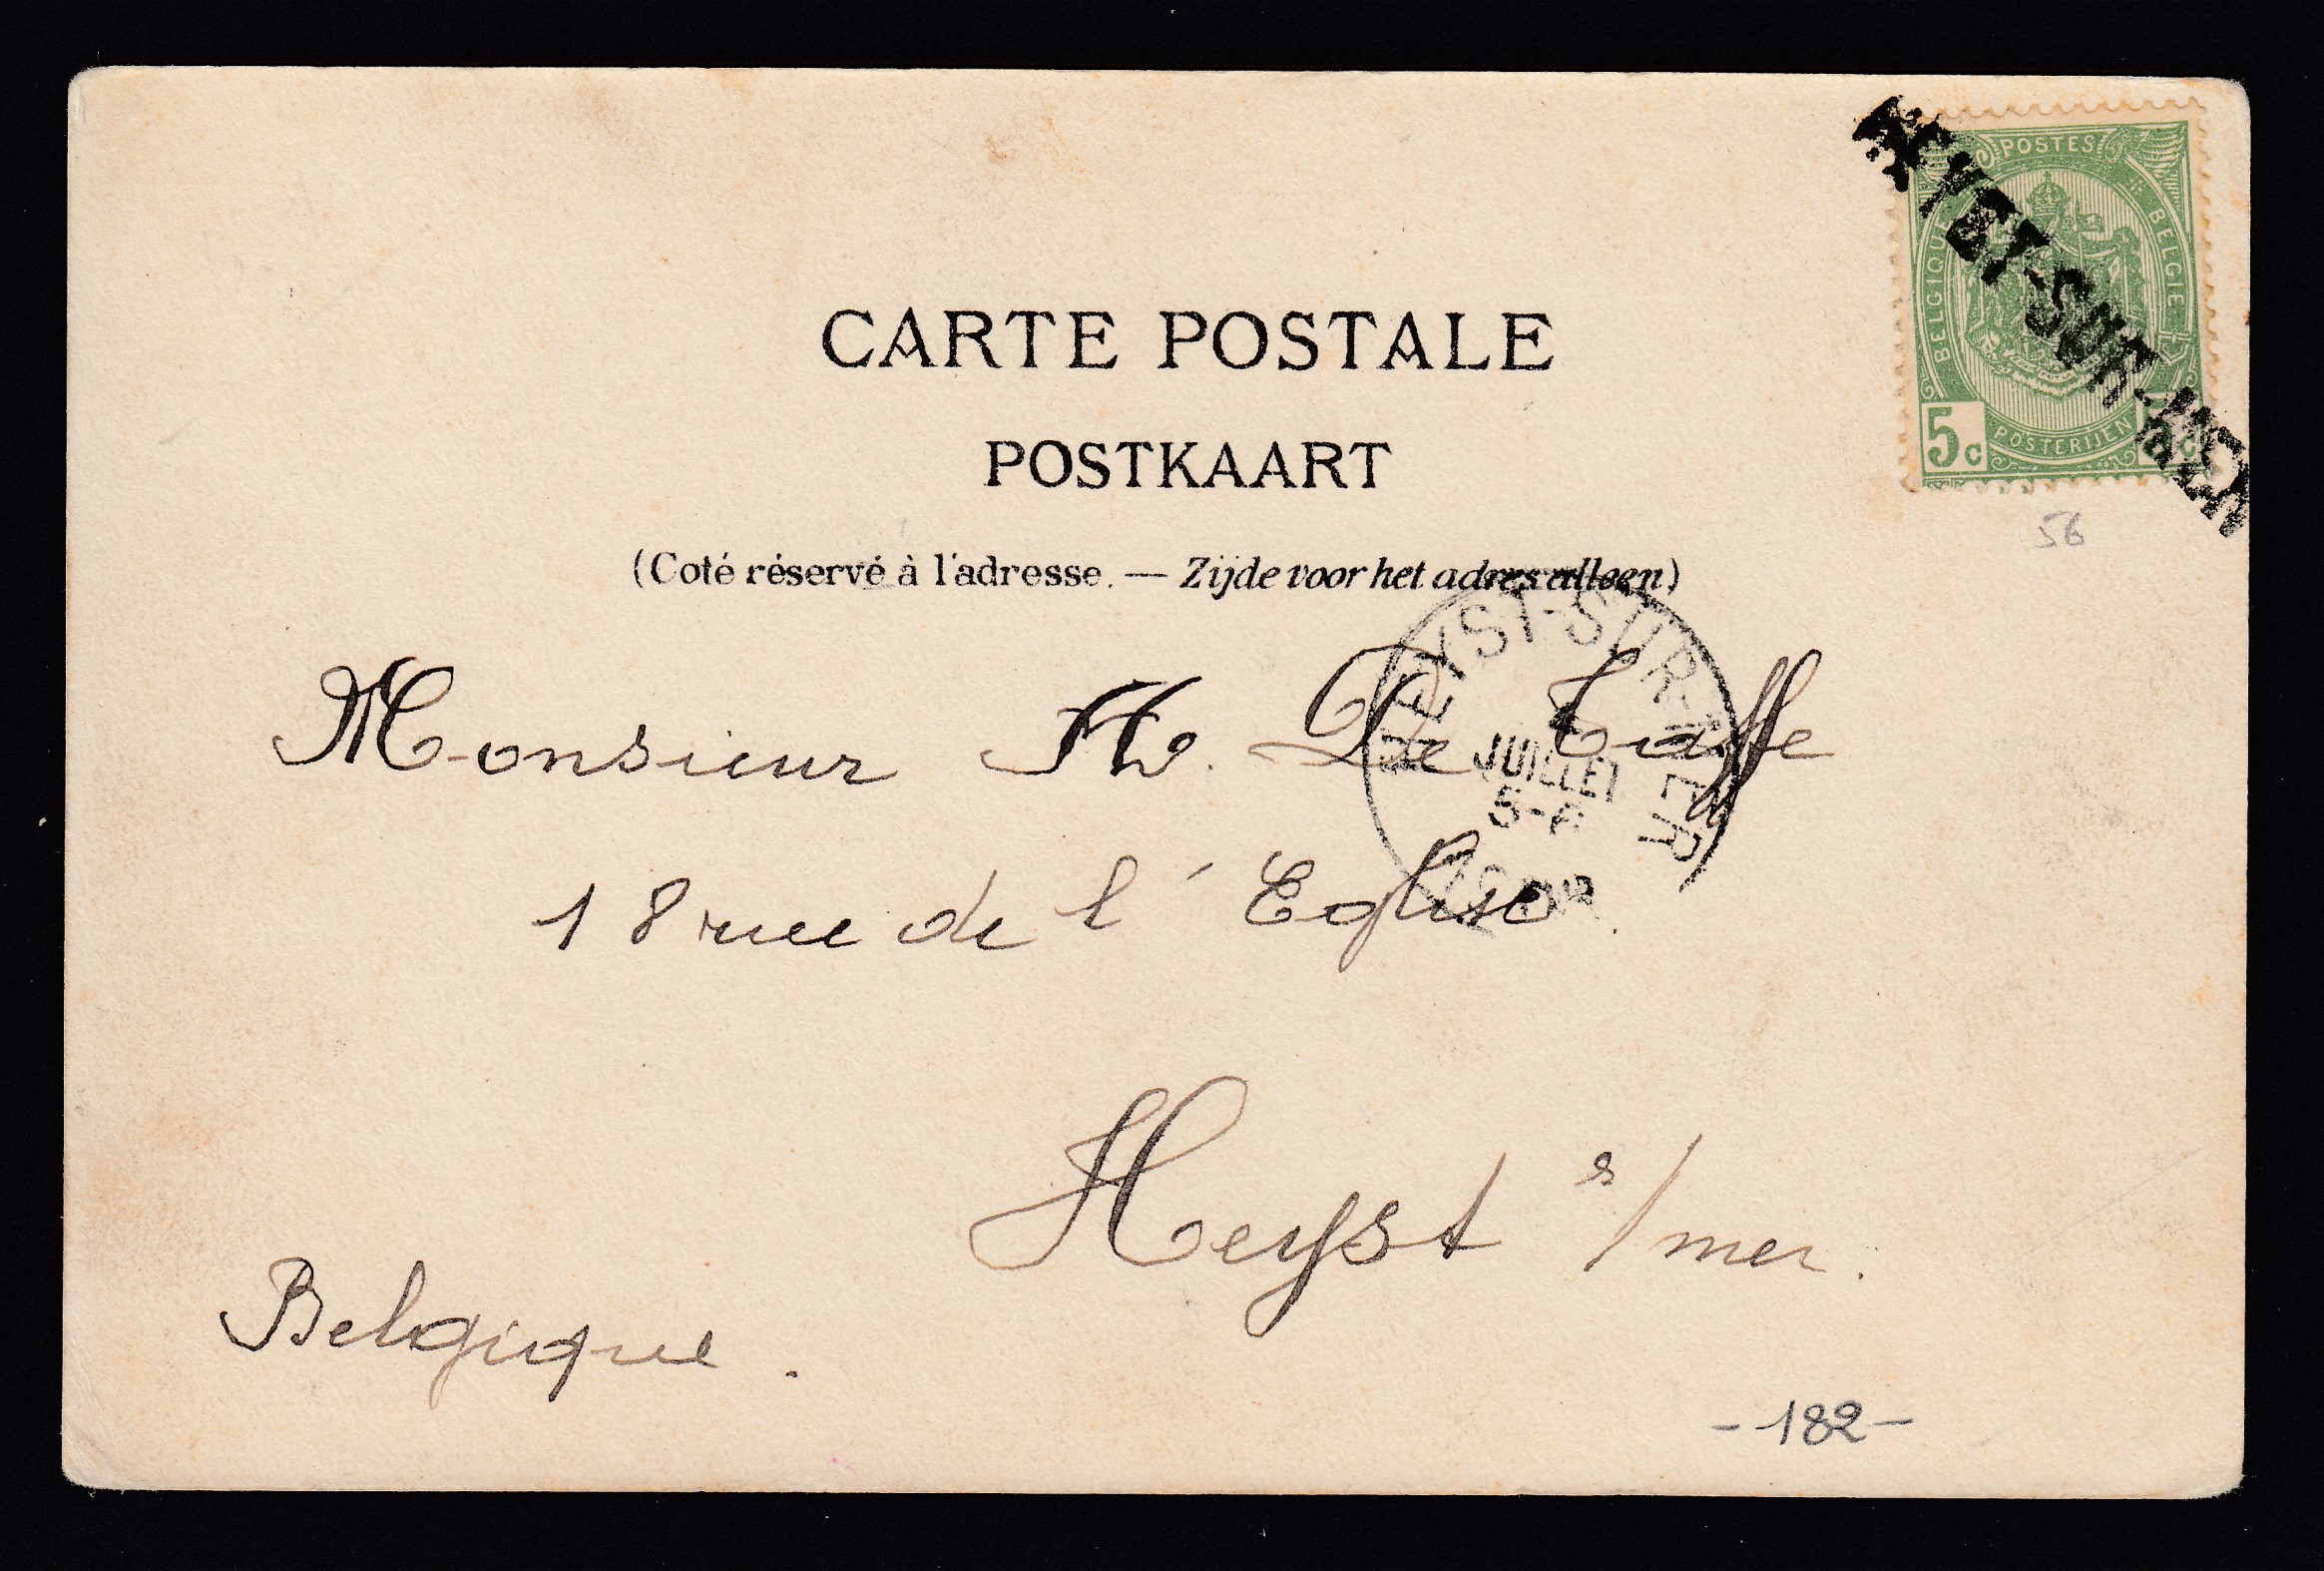 HEYST-SUR-MER
POSTES
BELGIQUE
BELGIE
5c
POSTERIJEN
56
CARTE POSTALE
POSTKAART
(Coté réservé à l'adresse. — Zijde voor het adres alleen)
HEYST-SUR-MER
JUILLET
5-6
Monsieur De
18 rue de l'Eglise.
Heyst s/mer.
Belgique.
-182-